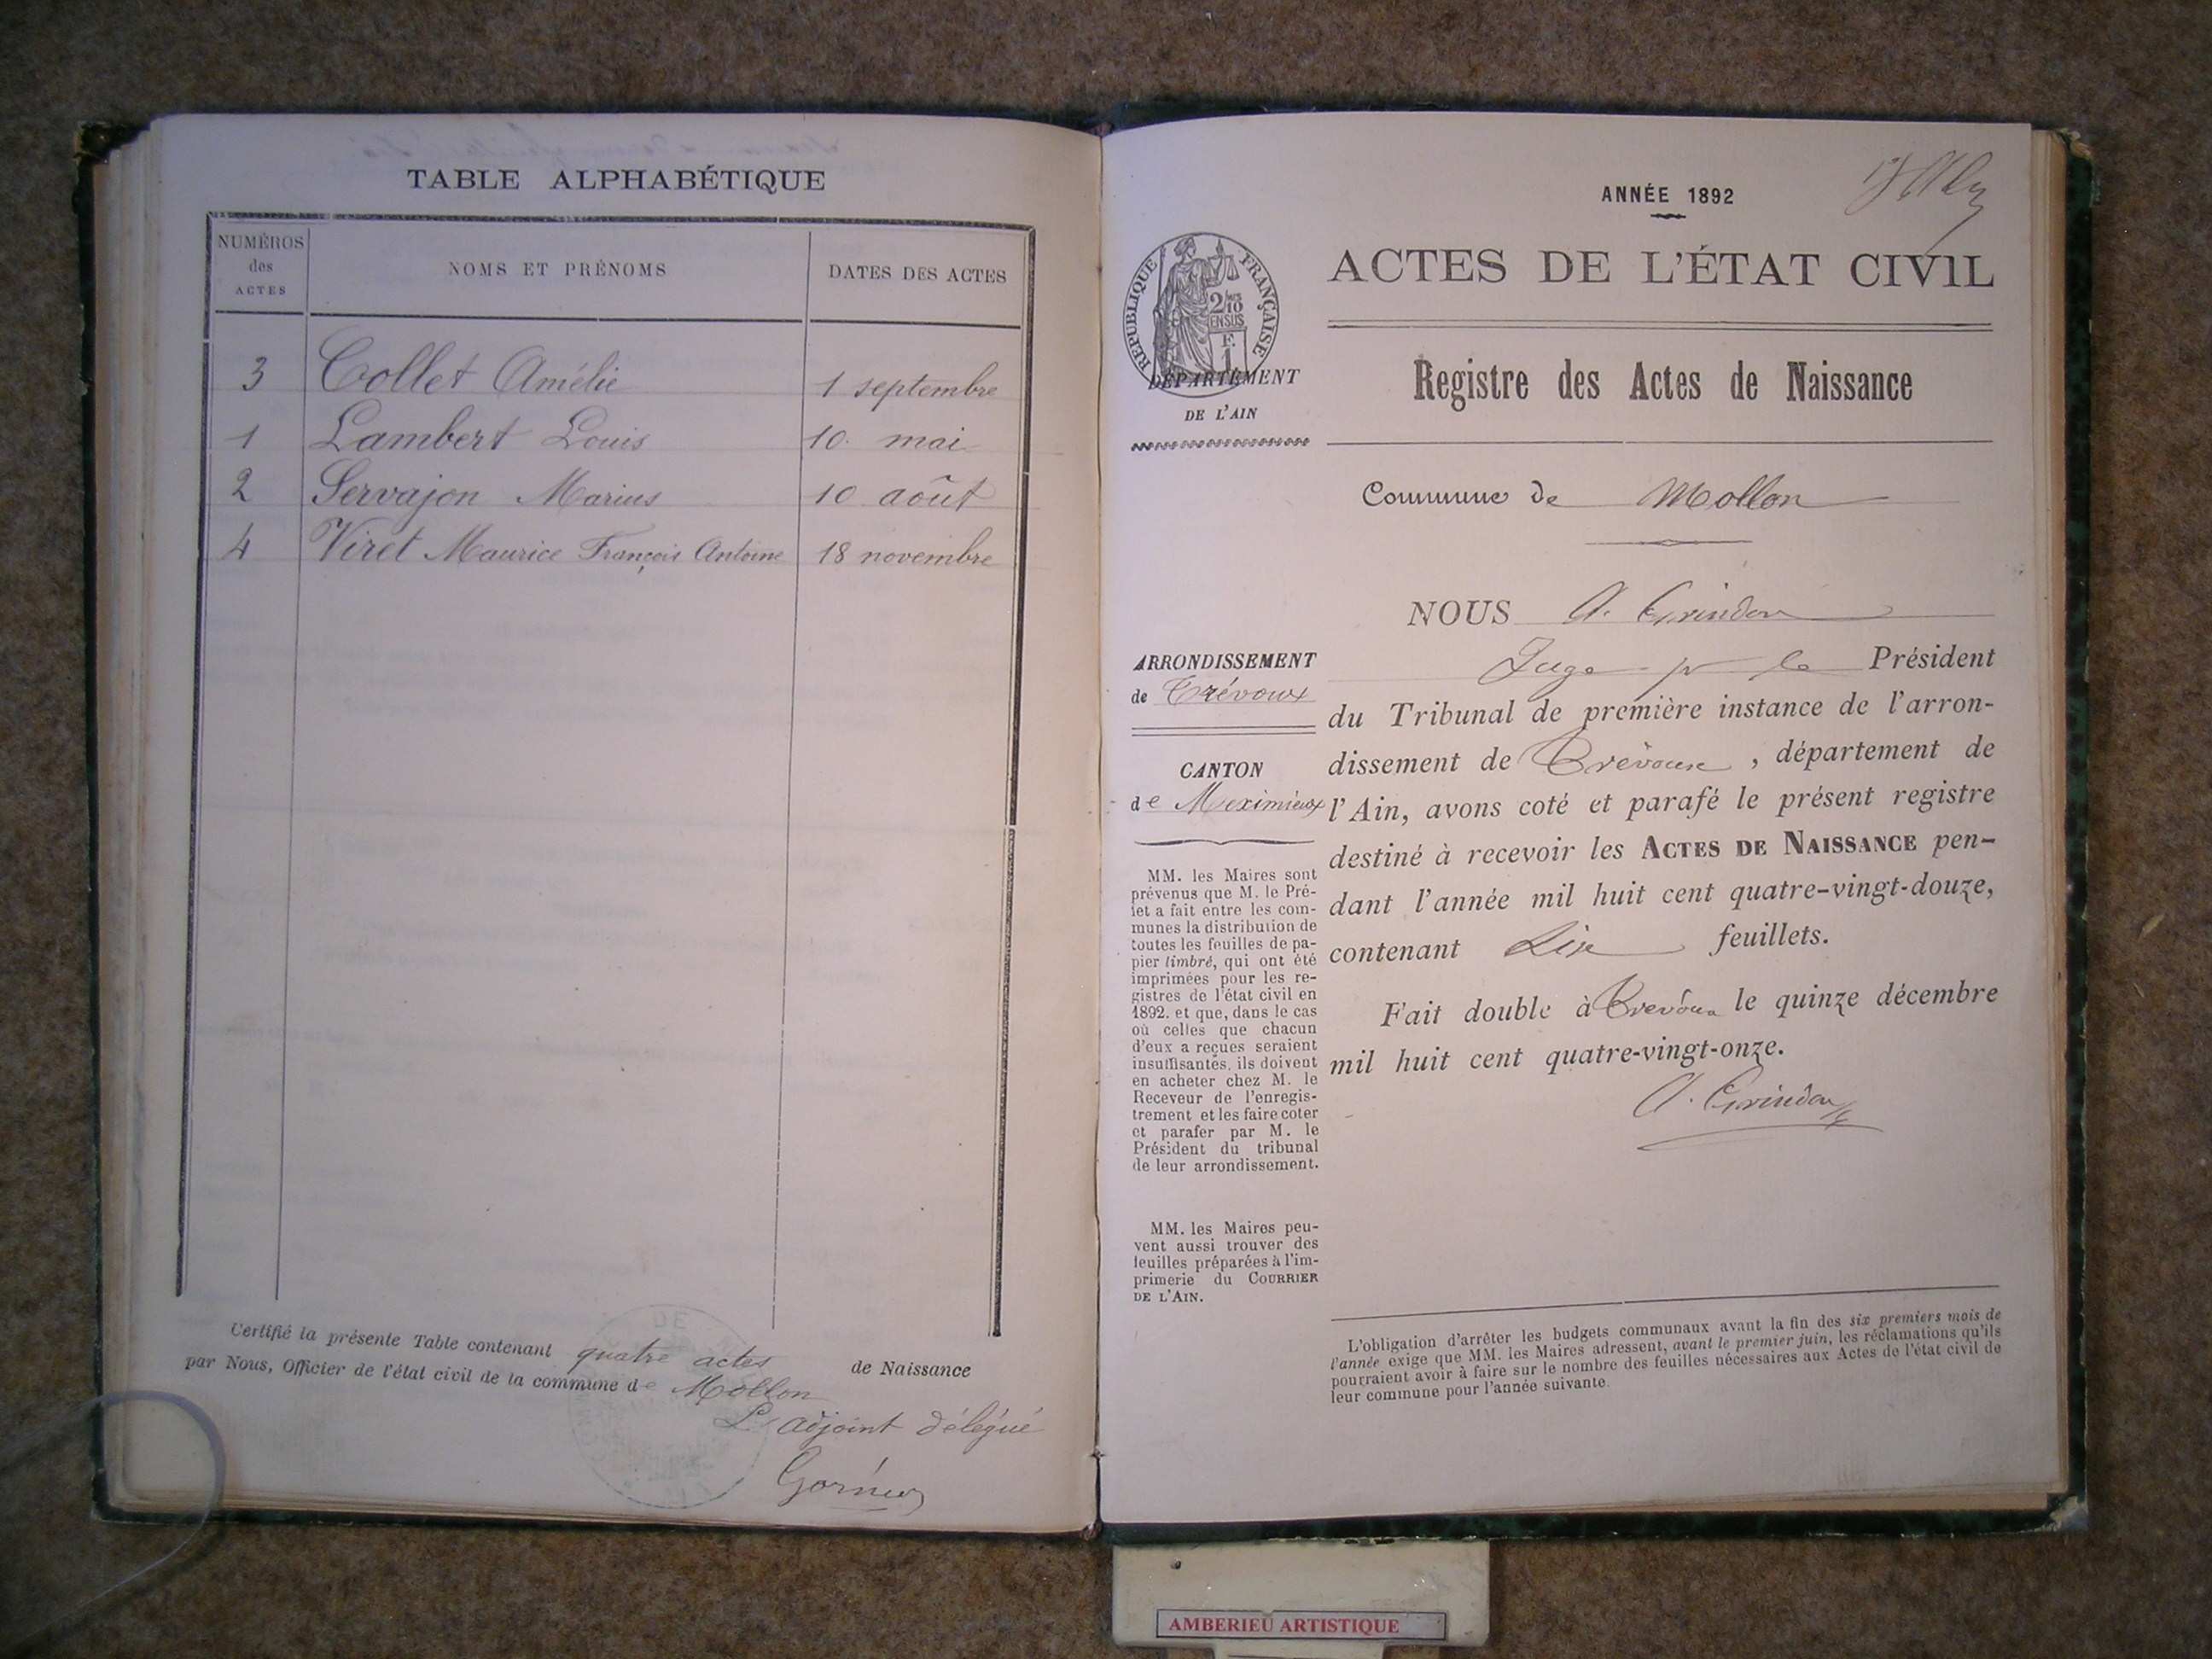 TABLE ALPHABÉTIQUE
NUMÉROS
des
ACTES
NOMS ET PRÉNOMS
DATES DES ACTES
3 Collet Amélie 1 septembre
1 Lambert Louis 10 mai
2 Servajon Marius 10 août
4 Viret Maurice François Antoine 18 novembre
Certifié la présente Table contenant quatre actes de Naissance
par Nous, Officier de l'état civil de la commune de Mollon
L'adjoint délégué
ANNÉE 1892
RÉPUBLIQUE FRANÇAISE
ACTES DE L'ÉTAT CIVIL
DÉPARTEMENT
DE L'AIN
Registre des Actes de Naissance
Commune de Mollon
ARRONDISSEMENT
de Trévoux
CANTON
de Meximieux
MM. les Maires sont
prévenus que M. le Pré-
fet a fait entre les com-
munes la distribution de
toutes les feuilles de pa-
pier timbré, qui ont été
imprimées pour les re-
gistres de l'état civil en
1892. et que, dans le cas
où celles que chacun
d'eux a reçues seraient
insuffisantes, ils doivent
en acheter chez M. le
Receveur de l'enregis-
trement et les faire coter
et parafer par M. le
Président du tribunal
de leur arrondissement.
MM. les Maires peu-
vent aussi trouver des
feuilles préparées à l'im-
primerie du COURRIER
DE L'AIN.
NOUS A. Grindon
Juge pr le Président
du Tribunal de première instance de l'arron-
dissement de Trévoux, département de
l'Ain, avons coté et parafé le présent registre
destiné à recevoir les ACTES DE NAISSANCE pen-
dant l'année mil huit cent quatre-vingt-douze,
contenant feuillets.
Fait double à Trévoux le quinze décembre
mil huit cent quatre-vingt-onze.
A. Grindon
L'obligation d'arrêter les budgets communaux avant la fin des six premiers mois de
l'année exige que MM. les Maires adressent, avant le premier juin, les réclamations qu'ils
pourraient avoir à faire sur le nombre des feuilles nécessaires aux Actes de l'état civil de
leur commune pour l'année suivante.
AMBERIEU ARTISTIQUE